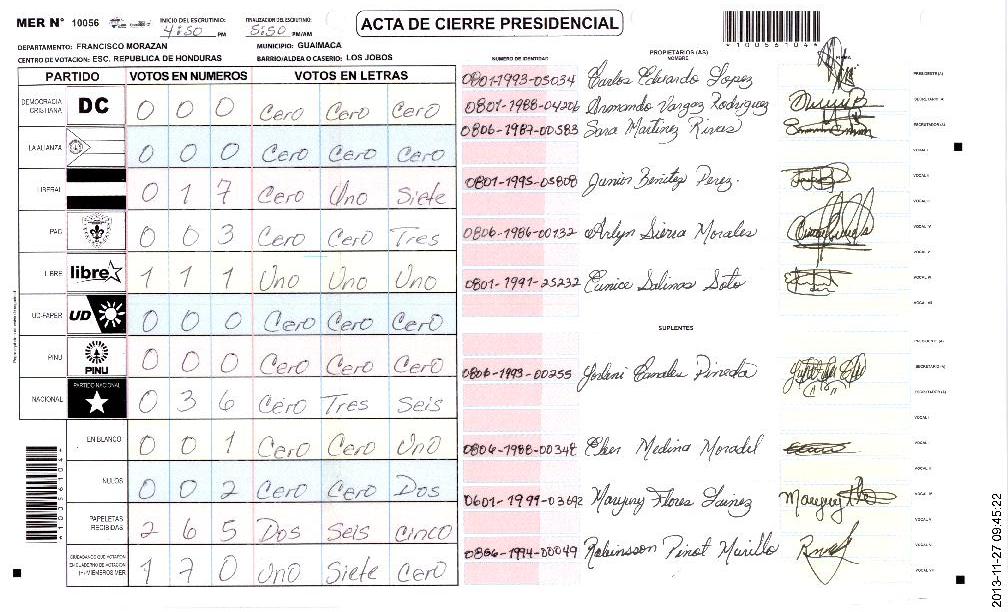 MER N° 10056
INICIO DEL ESCRUTINIO: 4:50 PM
FINALIZACION DEL ESCRUTINIO: 5:50 PM/AM
ACTA DE CIERRE PRESIDENCIAL
DEPARTAMENTO: FRANCISCO MORAZAN MUNICIPIO: GUAIMACA
CENTRO DE VOTACION: ESC. REPUBLICA DE HONDURAS BARRIO/ALDEA O CASERIO: LOS JOBOS
PARTIDO VOTOS EN NUMEROS VOTOS EN LETRAS
DEMOCRACIA CRISTIANA DC 0 0 0 Cero Cero Cero
LA ALIANZA 0 0 0 Cero Cero Cero
LIBERAL 0 1 7 Cero Uno Siete
PAC 0 0 3 Cero Cero Tres
LIBRE libre 1 1 1 Uno Uno Uno
UD-FAPER UD 0 0 0 Cero Cero Cero
PINU PINU 0 0 0 Cero Cero Cero
NACIONAL PARTIDO NACIONAL 0 3 6 Cero Tres Seis
EN BLANCO 0 0 1 Cero Cero Uno
NULOS 0 0 2 Cero Cero Dos
PAPELETAS RECIBIDAS 2 6 5 Dos Seis Cinco
CIUDADANOS QUE VOTARON EN CUADERNO DE VOTACION (+) MIEMBROS MER 1 7 0 Uno Siete Cero
NUMERO DE IDENTIDAD
PROPIETARIOS (AS)
NOMBRE
FIRMA
0801-1993-03034 Carlos Edvardo Lopez PRESIDENTE(A)
0801-1988-04206 Armando Vargas Rodriguez SECRETARIO(A)
0806-1987-00583 Sara Martinez Rivas ESCRUTADOR(A)
VOCAL I
0801-1995-05808 Junior Benitez Perez. VOCAL II
VOCAL III
0806-1986-00132 Arlyn Sierra Morales VOCAL IV
VOCAL V
0801-1991-25232 Eunice Salinas Soto VOCAL VI
VOCAL VII
SUPLENTES
PRESIDENTE(A)
0806-1993-00255 Canales Pineda SECRETARIO(A)
ESCRUTADOR(A)
VOCAL I
0806-1988-00348 Elser Medina Moradel VOCAL II
VOCAL III
0601-1999-03692 Flores VOCAL IV
Mayury
VOCAL V
0806-1994-00049 Robinsson Pinot Murillo VOCAL VI
VOCAL VII
2013-11-27 09:45:22